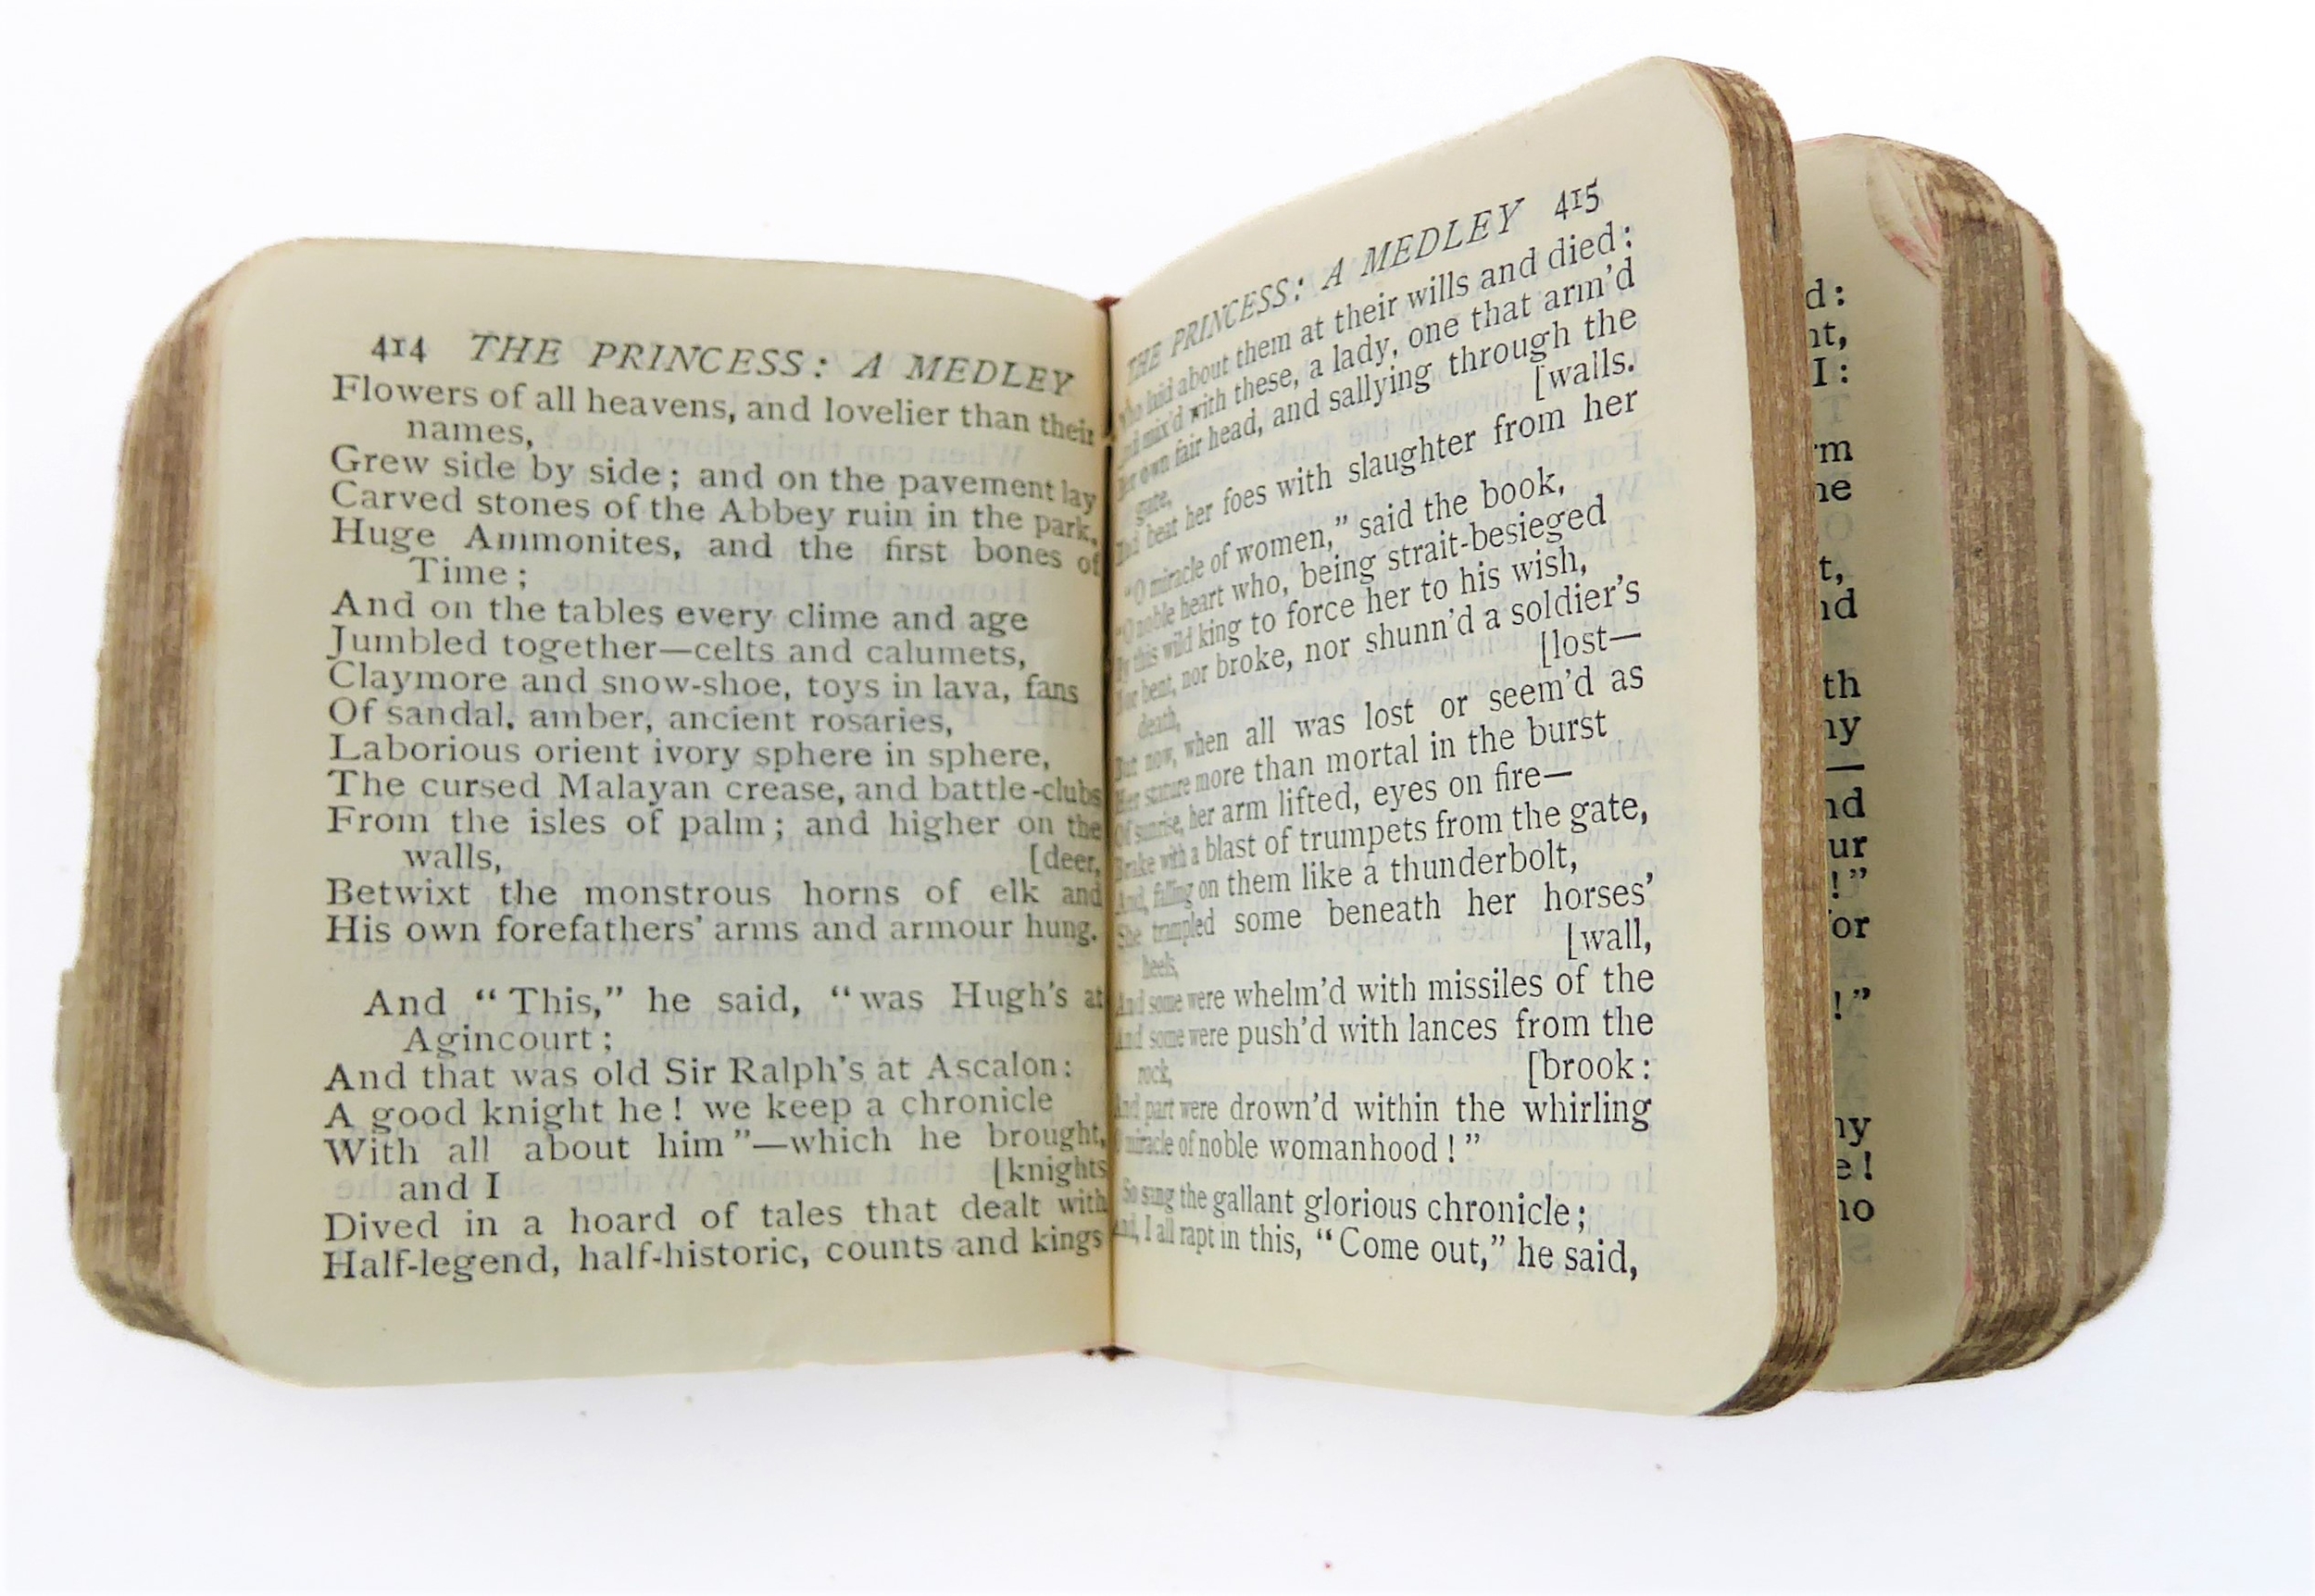 414 THE PRINCESS: A MEDLEY
Flowers of all heavens, and lovelier than their
names,
Grew side by side; and on the pavement lay
Carved stones of the Abbey ruin in the park,
Huge Ammonites, and the first bones of
Time;
And on the tables every clime and age
Jumbled together—celts and calumets,
Claymore and snow-shoe, toys in lava, fans
Of sandal, amber, ancient rosaries,
Laborious orient ivory sphere in sphere,
The cursed Malayan crease, and battle-clubs
From the isles of palm; and higher on the
walls, [deer,
Betwixt the monstrous horns of elk and
His own forefathers' arms and armour hung.
And “This,” he said, “was Hugh's at
Agincourt;
And that was old Sir Ralph's at Ascalon:
A good knight he! we keep a chronicle
With all about him”—which he brought,
and I [knights
Dived in a hoard of tales that dealt with
Half-legend, half-historic, counts and kings
THE PRINCESS: A MEDLEY 415
Who laid about them at their wills and died:
And mix'd with these, a lady, one that arm'd
Her own fair head, and sallying through the
gate, [walls.
Had beat her foes with slaughter from her
“O miracle of women,” said the book,
“O noble heart who, being strait-besieged
By this wild king to force her to his wish,
Nor bent, nor broke, nor shunn'd a soldier's
death, [lost—
But now, when all was lost or seem'd as
Her stature more than mortal in the burst
Of sunrise, her arm lifted, eyes on fire—
Brake with a blast of trumpets from the gate,
And, falling on them like a thunderbolt,
She trampled some beneath her horses'
heels, [wall,
And some were whelm'd with missiles of the
And some were push'd with lances from the
rock, [brook:
And part were drown'd within the whirling
O miracle of noble womanhood!”
So sang the gallant glorious chronicle;
And, I all rapt in this, “Come out,” he said,